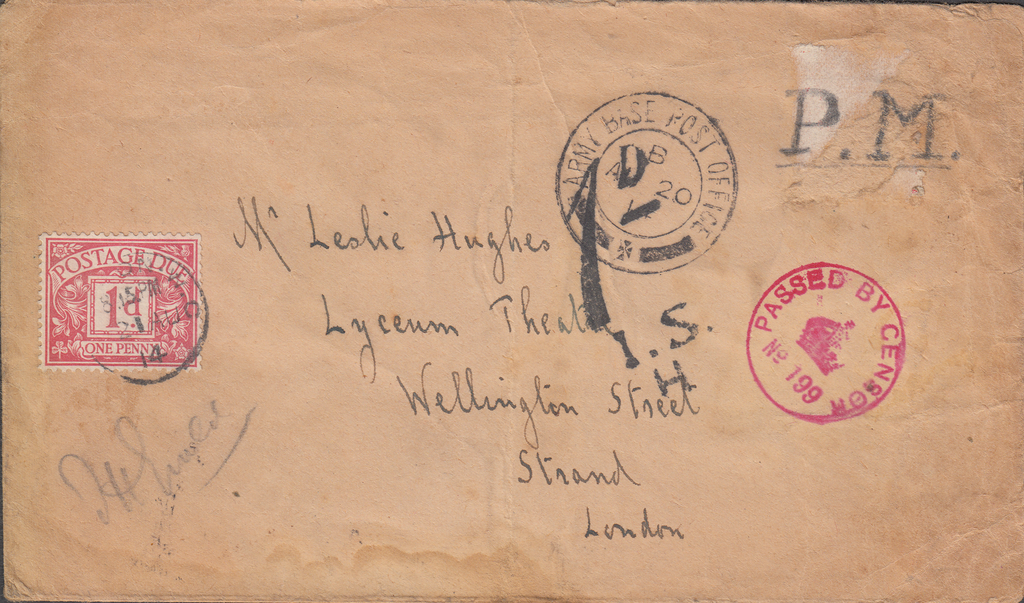 P.M.
ARMY BASE POST OFFICE
B
20
1D
I.S.
H
Mr Leslie Hughes
Lyceum Theatre
Wellington Street
Strand
London
POSTAGE DUE
1d
ONE PENNY
PASSED BY CENSOR
No 199